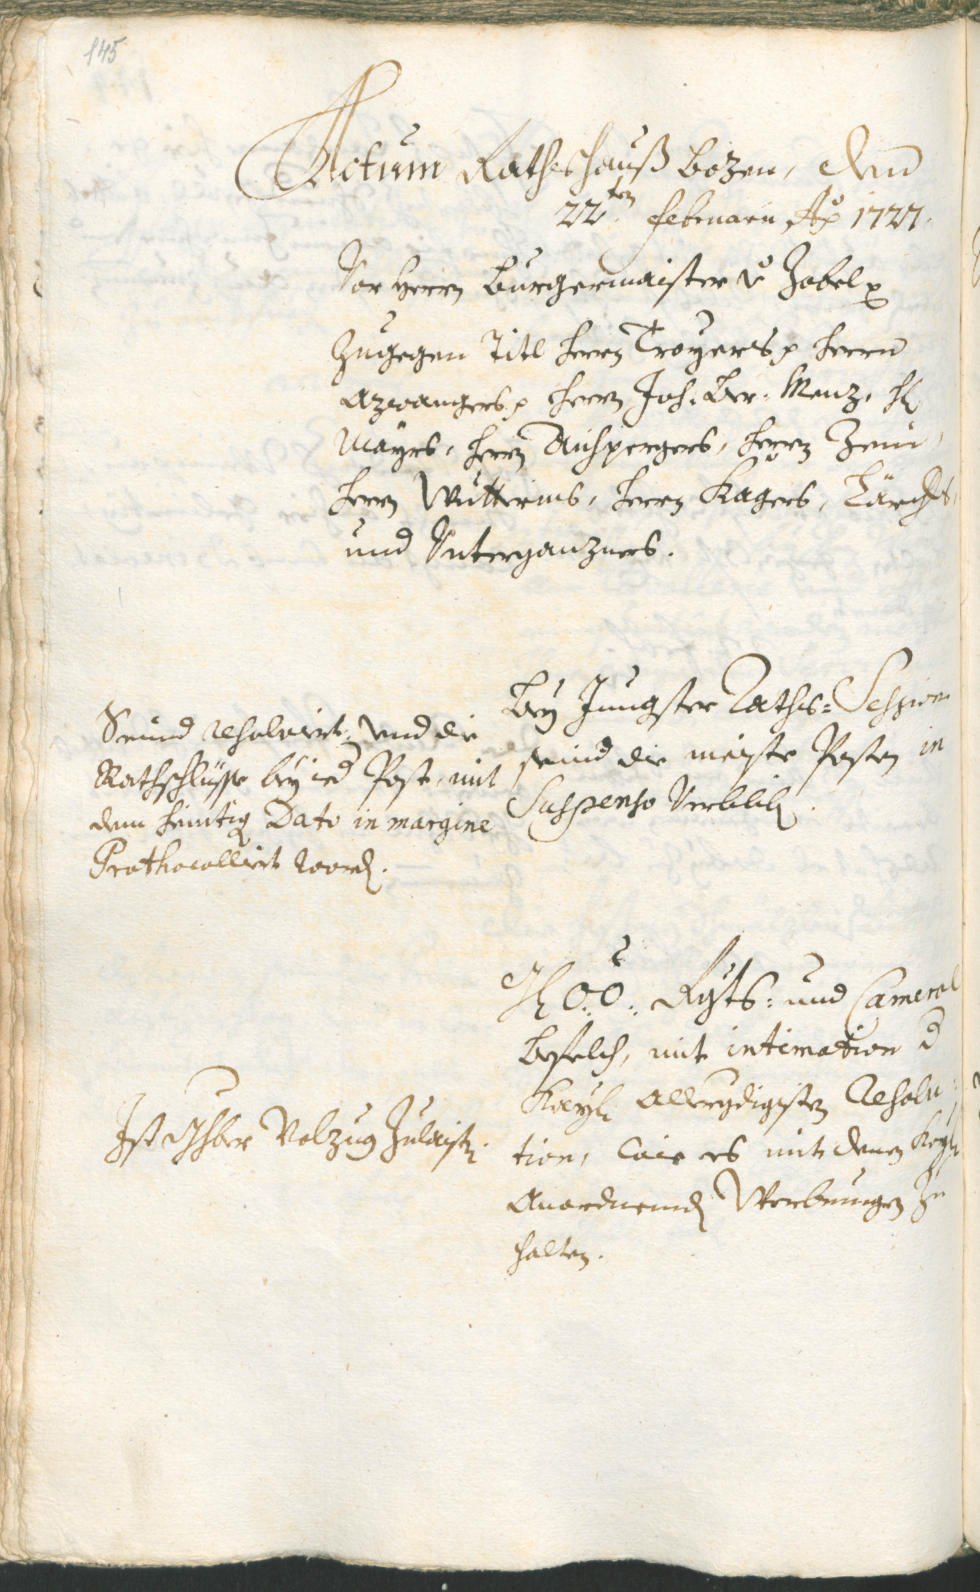 145
Actum Rathshauß Bozen, den
22ten Februarii Ao 1727.
Vor Herrn Burgermaister v: Zobel p
Zugegen Titl Herrn Troyers p Herrn
Azwangers p Herrn Joh: Menz, H
Mayrs, Herrn Aichpergers, Herrn
Herrn Herrn Kagers,
und Unterganzners.
Bey Jungster Raths=Session
seind die meiste Posten in
Suspenso Verblib.
Seind resolviert, und die
Rathschlüsse bey ied Post, mit
dem heintig Dato in margine
Prothocolliert word.
O:Ö: Rgts: und Cameral
befelch, mit intimation d
Kayl allergdigisten Resolu=
tion, wie es mit denen
Anordnend Werbungen zu
halten.
Ist Volzug Zulaist.